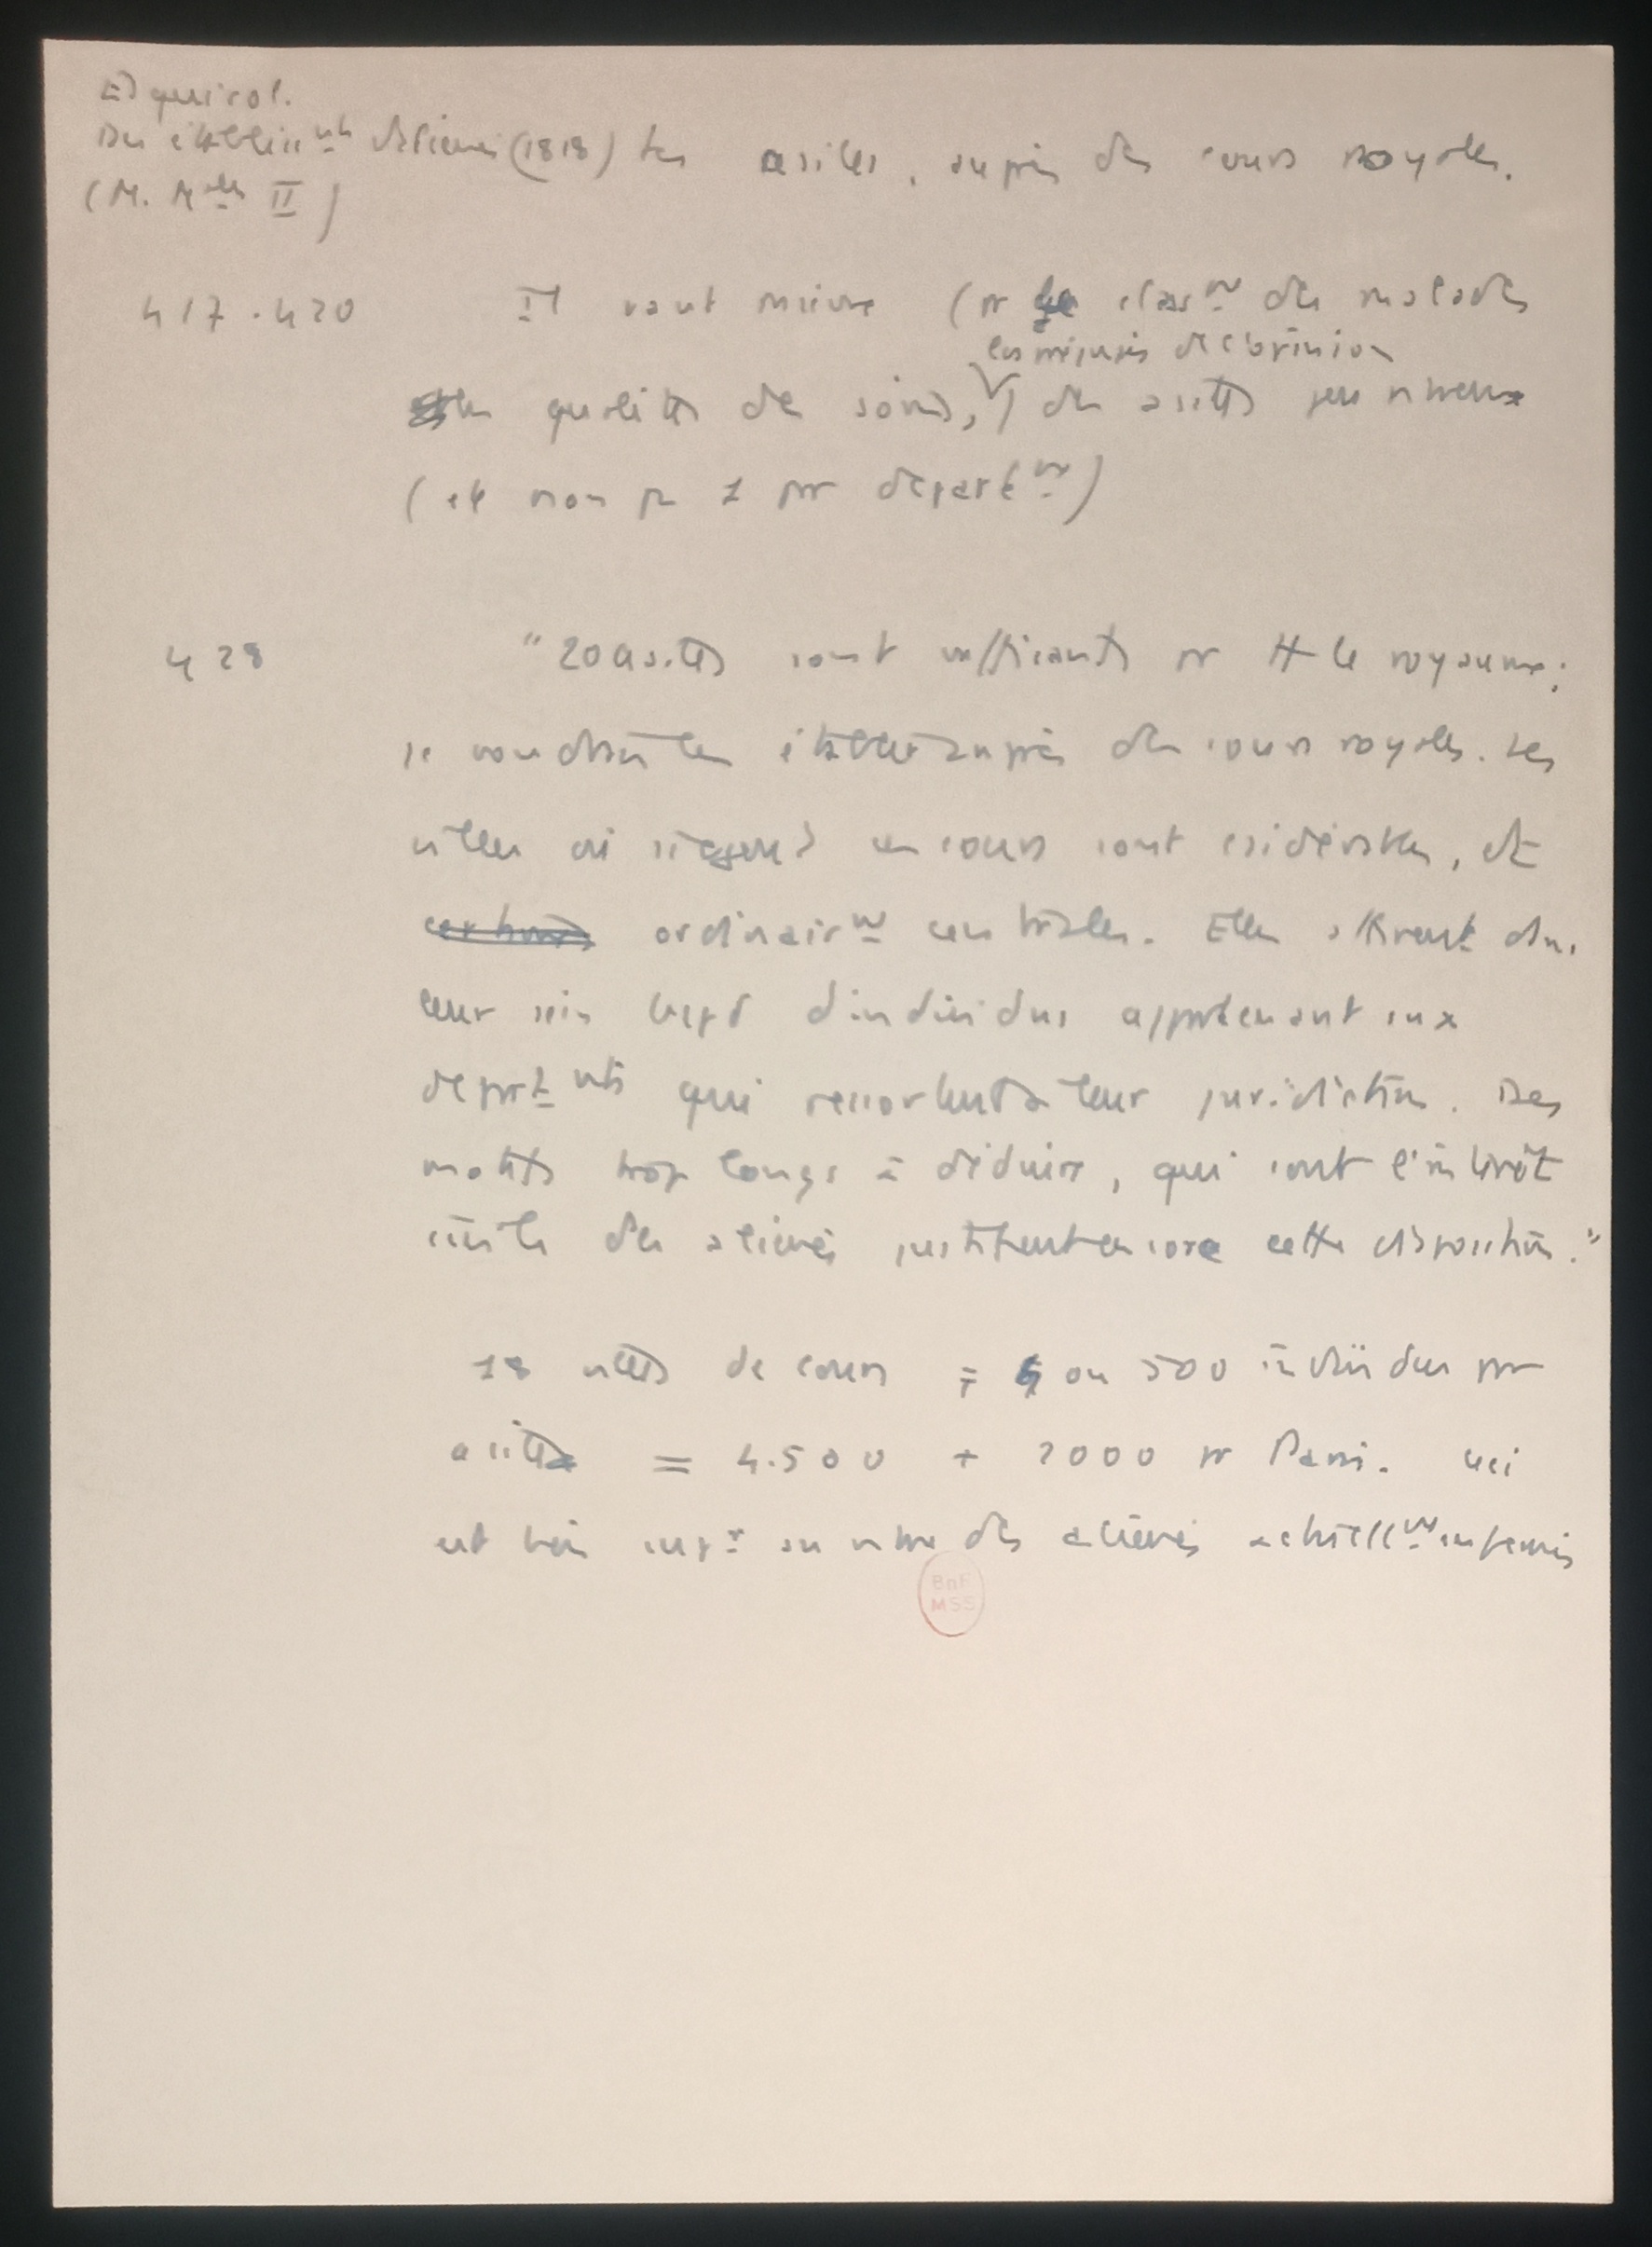 Esquirol.
Des établiss.nts d'aliénés (1818)
(M. M.ales II)
Les asiles, auprès des cours royales.
417-420
Il vaut mieux (pr le class.nt des malades
les préjugés de l'opinion
les qualités des soins, ) des asiles peu nbreux
(et non pas 1 par départ.nt)
428
"20 asiles sont suffisants pr tt le royaume;
je voudrais les établir auprès des cours royales. Les
villes où siègent ces cours sont csidérables, et
ordinair.nt centrales. Elles attirent ds
leur sein bcp d'individus appartenant aux
départ.nts qui ressortent à leur juridiction. Des
motifs trop longs à déduire, qui sont l'intérêt
civil des aliénés justifient encore cette disposition."
18 villes de cours à 4 ou 500 individus par
asile = 4.500 + 2000 pr Paris. ceci
est bien sup.r au nbre des aliénés actuell.nt enfermés
BnF
MSS